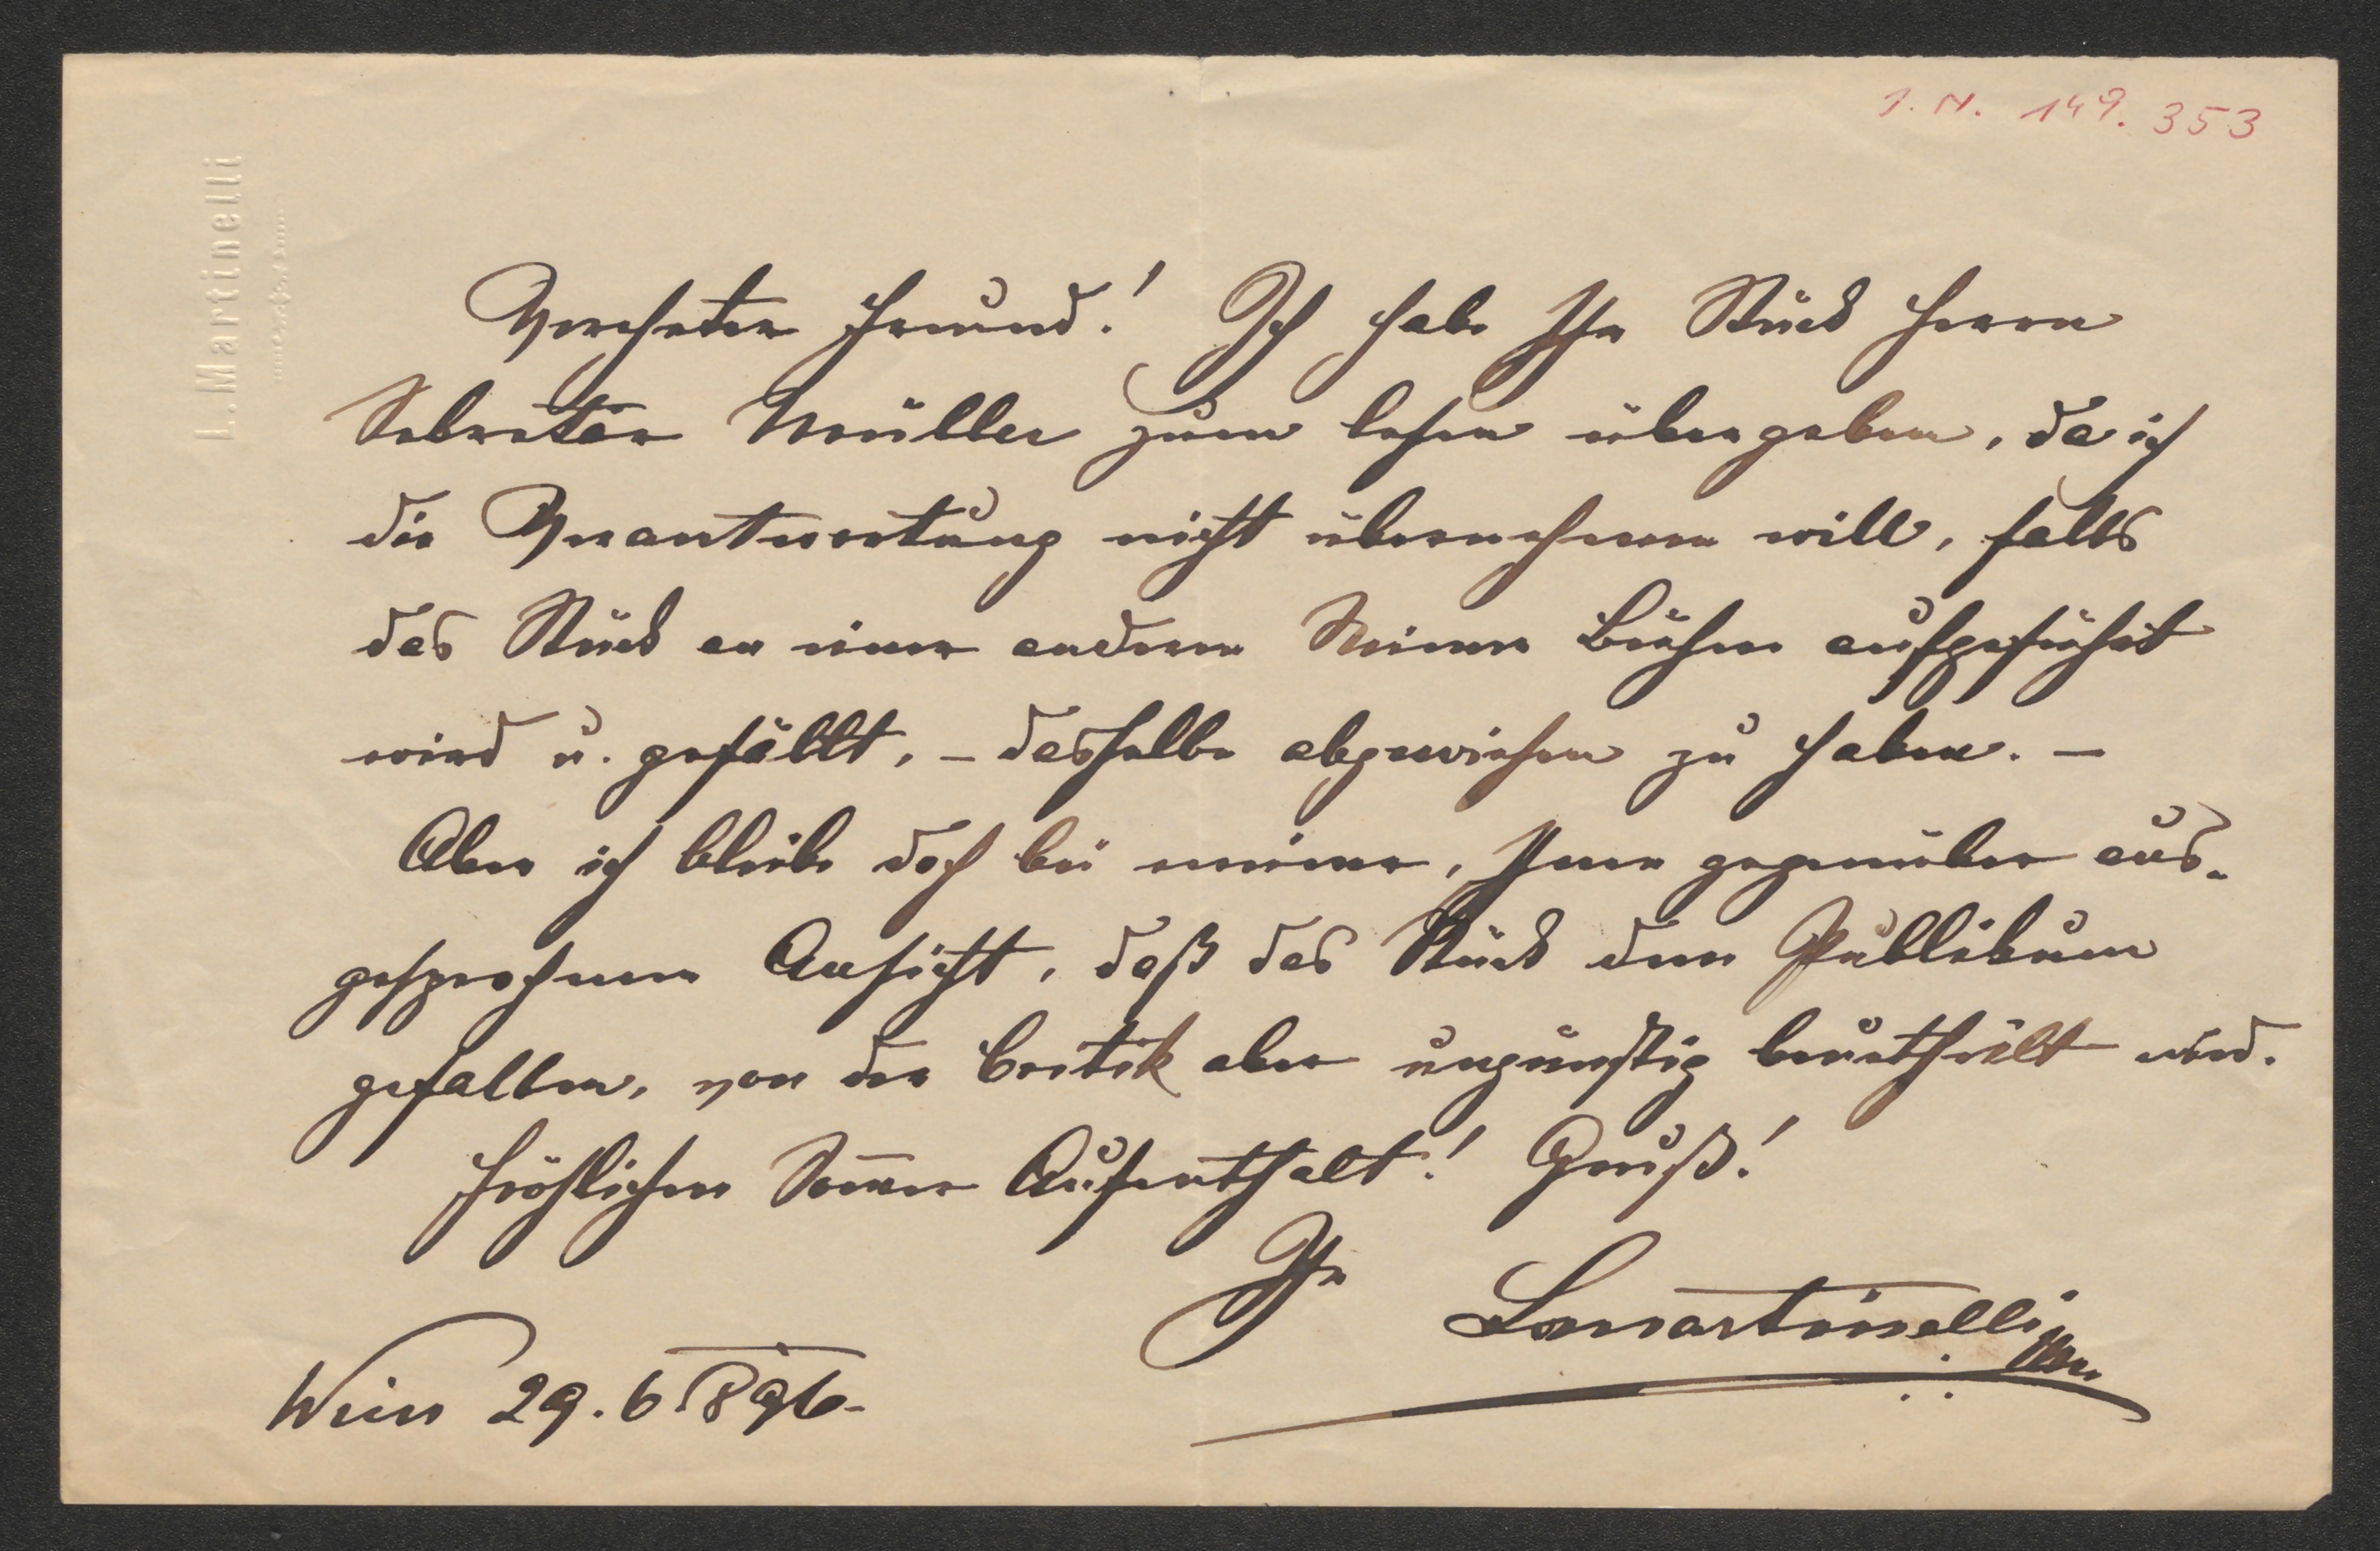 I. N. 149.353
L. Martinelli
Verehrter Freund! Ich habe Ihr Stück Herrn
Sekretär Müller zum lesen übergeben, da ich
die Verantwortung nicht übernehmen will, falls
das Stück an einer anderen Wiener Bühne aufgeführt
wird u. gefällt, – dasselbe abgewiesen zu haben. –
Aber ich bleibe doch bei meiner, Ihnen gegenüber aus-
gesprochenen Ansicht, daß das Stück dem Publikum
gefallen, von der Critik aber ungünstig beurtheilt wird.
Fröhlichen Som̅er Aufenthalt! Gruß!
Ihr LMartinelli
Wien 29. 6 1896.